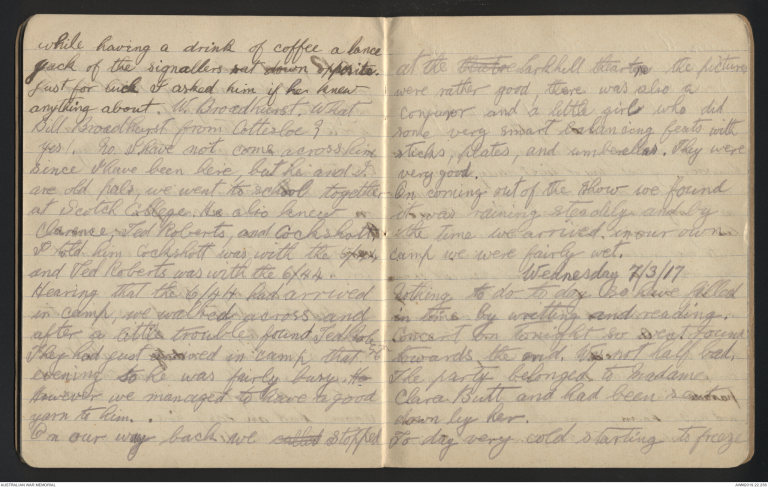 while having a drink of coffee a lance
jack of the signallers sat down opposite.
Just for luck I asked him if he knew
anything about. W. Broadhurst. What
Bill Broadhurst from Cottesloe?
yes!. No I have not come across him
since I have been here, but he and I
are old pals, we went to school together
at Scotch College. He also knew
Clarence, Ted Roberts, and Cockshott,
I told him Cockshott was with the
and Ted Roberts was with the 6/44.
Hearing that the 6/44 had arrived
in camp, we walked across and
after a little trouble found Ted Roberts
They had just arrived in camp that
evening so he was fairly busy. He
however we managed to have a good
yarn to him.
On our way back we called stopped
at the theatre Larkhill theatre the pictures
were rather good, there was also a
conjuror and a little girl who did
some very smart balancing feats with
sticks, plates, and umbrellas. They were
very good.
On coming out of the show we found
it was raining steadily and by
the time we arrived in our own
camp we were fairly wet.
Wednesday 7/3/17
Nothing to do to day so have filled
in time by writing and reading.
Concert on tonight so went round
towards the end. Was not half bad.
The party belonged to Madame
Clara Butt and had been sent
down by her.
To day very cold starting to freeze
AUSTRALIAN WAR MEMORIAL